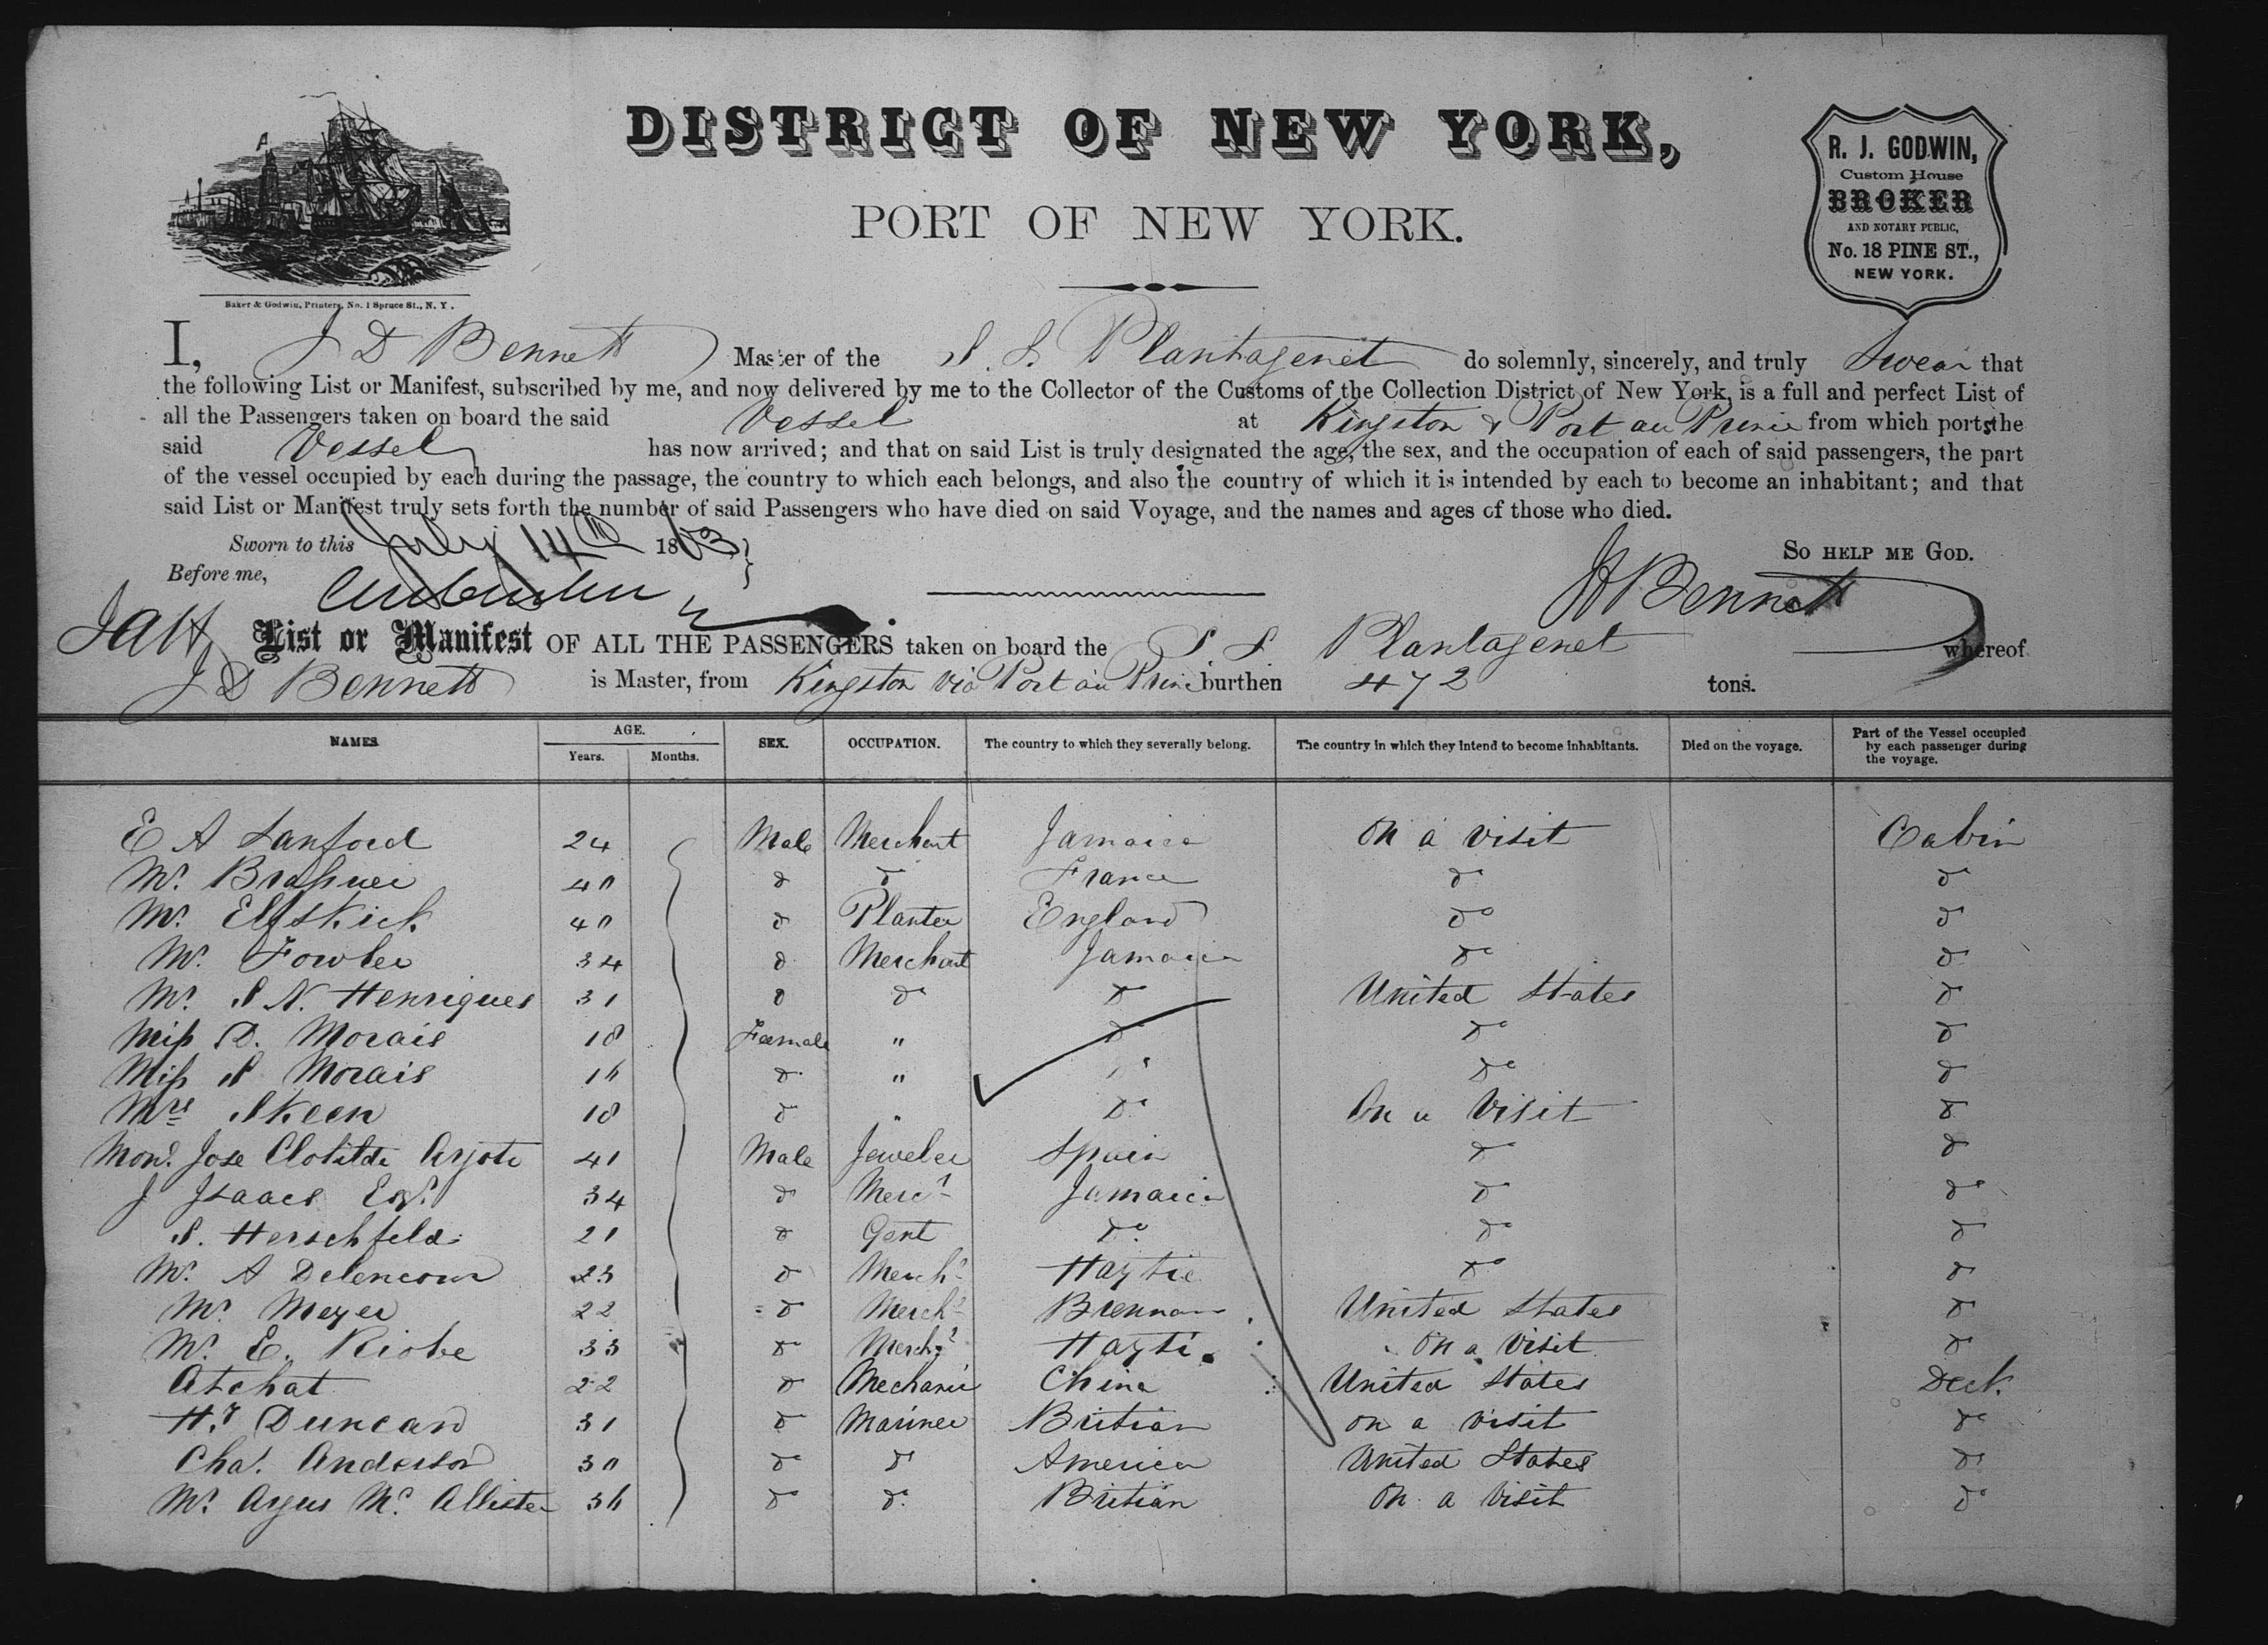 DISTRICT OF NEW YORK,
PORT OF NEW YORK.
R. J. GODWIN,
Custom House
BROKER
AND NOTARY PUBLIC,
No. 18 PINE ST.,
NEW YORK.
Baker & Godwin, Printers, No. 1 Spruce St., N. Y.
I, J D Bennett Master of the S. S. Plantagenet do solemnly, sincerely, and truly Swear that
the following List or Manifest, subscribed by me, and now delivered by me to the Collector of the Customs of the Collection District of New York, is a full and perfect List of
all the Passengers taken on board the said Vessel at Kingston & Port au Prince from which ports the
said Vessel has now arrived; and that on said List is truly designated the age, the sex, and the occupation of each of said passengers, the part
of the vessel occupied by each during the passage, the country to which each belongs, and also the country of which it is intended by each to become an inhabitant; and that
said List or Manifest truly sets forth the number of said Passengers who have died on said Voyage, and the names and ages of those who died.
Sworn to this July 14th 1863 So help me God.
Before me, JD Bennett
List or Manifest OF ALL THE PASSENGERS taken on board the S S Plantagenet whereof
J D Bennett is Master, from Kingston via Port au Prince burthen 472 tons.
NAMES AGE. Years. Months. SEX. OCCUPATION. The country to which they severally belong. The country in which they intend to become inhabitants. Died on the voyage. Part of the Vessel occupied by each passenger during the voyage.
E A Sanford 24 Male Merchant Jamaica On a visit Cabin
Mr. 40 do do France do do
Mr. 40 do Planter England do do
Mr. Fowler 34 do Merchant Jamaica do do
Mr. S N. Henriques 31 do do do United States do
Miss D. Morais 18 Feemale " do do do
Miss S Morais 16 do " " do do
Mrs Skeen 18 do " do On a Visit do
Jose Clotilde 41 Male Jeweler Spain do do
J Isaacs Esqr. 34 do Merct Jamaica do do
S. Herschfeld 21 do Gent do do do
Mr. A Delencour 23 do Mercht Haytie do do
Mr Meyer 22 do Mercht Bremman United States do
Mr. E. Riobe 33 do Mercht Hayti. On a Visit do
Atchat 22 do Mechanic China United States Deck
Hy Duncan 31 do Mariner Britian on a visit do
Cha. Anderson 30 do do America United States do
Mr. Argus Mc. Allister 36 do do Britian On a Visit do